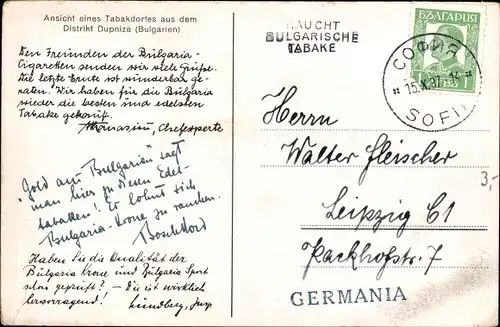 Ansicht eines Tabakdorfes aus dem
Distrikt Dupniza (Bulgarien)
Den Freunden der Bulgaria-
Cigaretten senden wir viele Grüsse.
Die letzte Ernte ist wunderbar ge-
raten! Wir haben für die Bulgaria
wieder die besten und edelsten
Tabake gekauft.
Athanasiu, Chefexperte
"Gold aus Bulgarien" sagt
man hier zu diesen Edel-
tabaken! Es lohnt sich
Bulgaria-Krone zu rauchen.
Haben Sie die Qualität der
Bulgaria Krone und Bulgaria Sport
schon geprüft? – die ist wirklich
hervorragend!
RAUCHT
BULGARISCHE
TABAKE
БЪЛГАРИЯ
СОФИЯ
15.X.37.14
SOFIA
Herrn
Walter Fleischer
Leipzig C1
Packhofstr. 7
3,-
GERMANIA